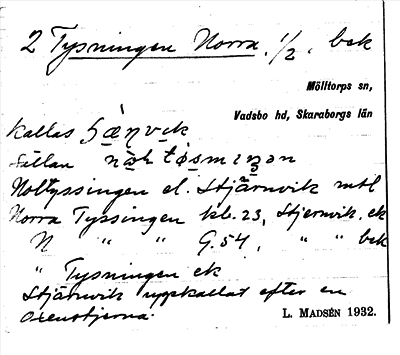 2 Tysningen Norra. 1/2, bek
Mölltorps sn,
Vadsbo hd, Skaraborgs län
kallas
sällan
Noltyssingen el. Stjärnvik mtl
Norra Tyssingen kl. 23, Stjernvik, ek
N " " G. 54, " " bek
" Tysningen ek
Stjärnvik uppkallat efter en
L. MADSÉN 1932.